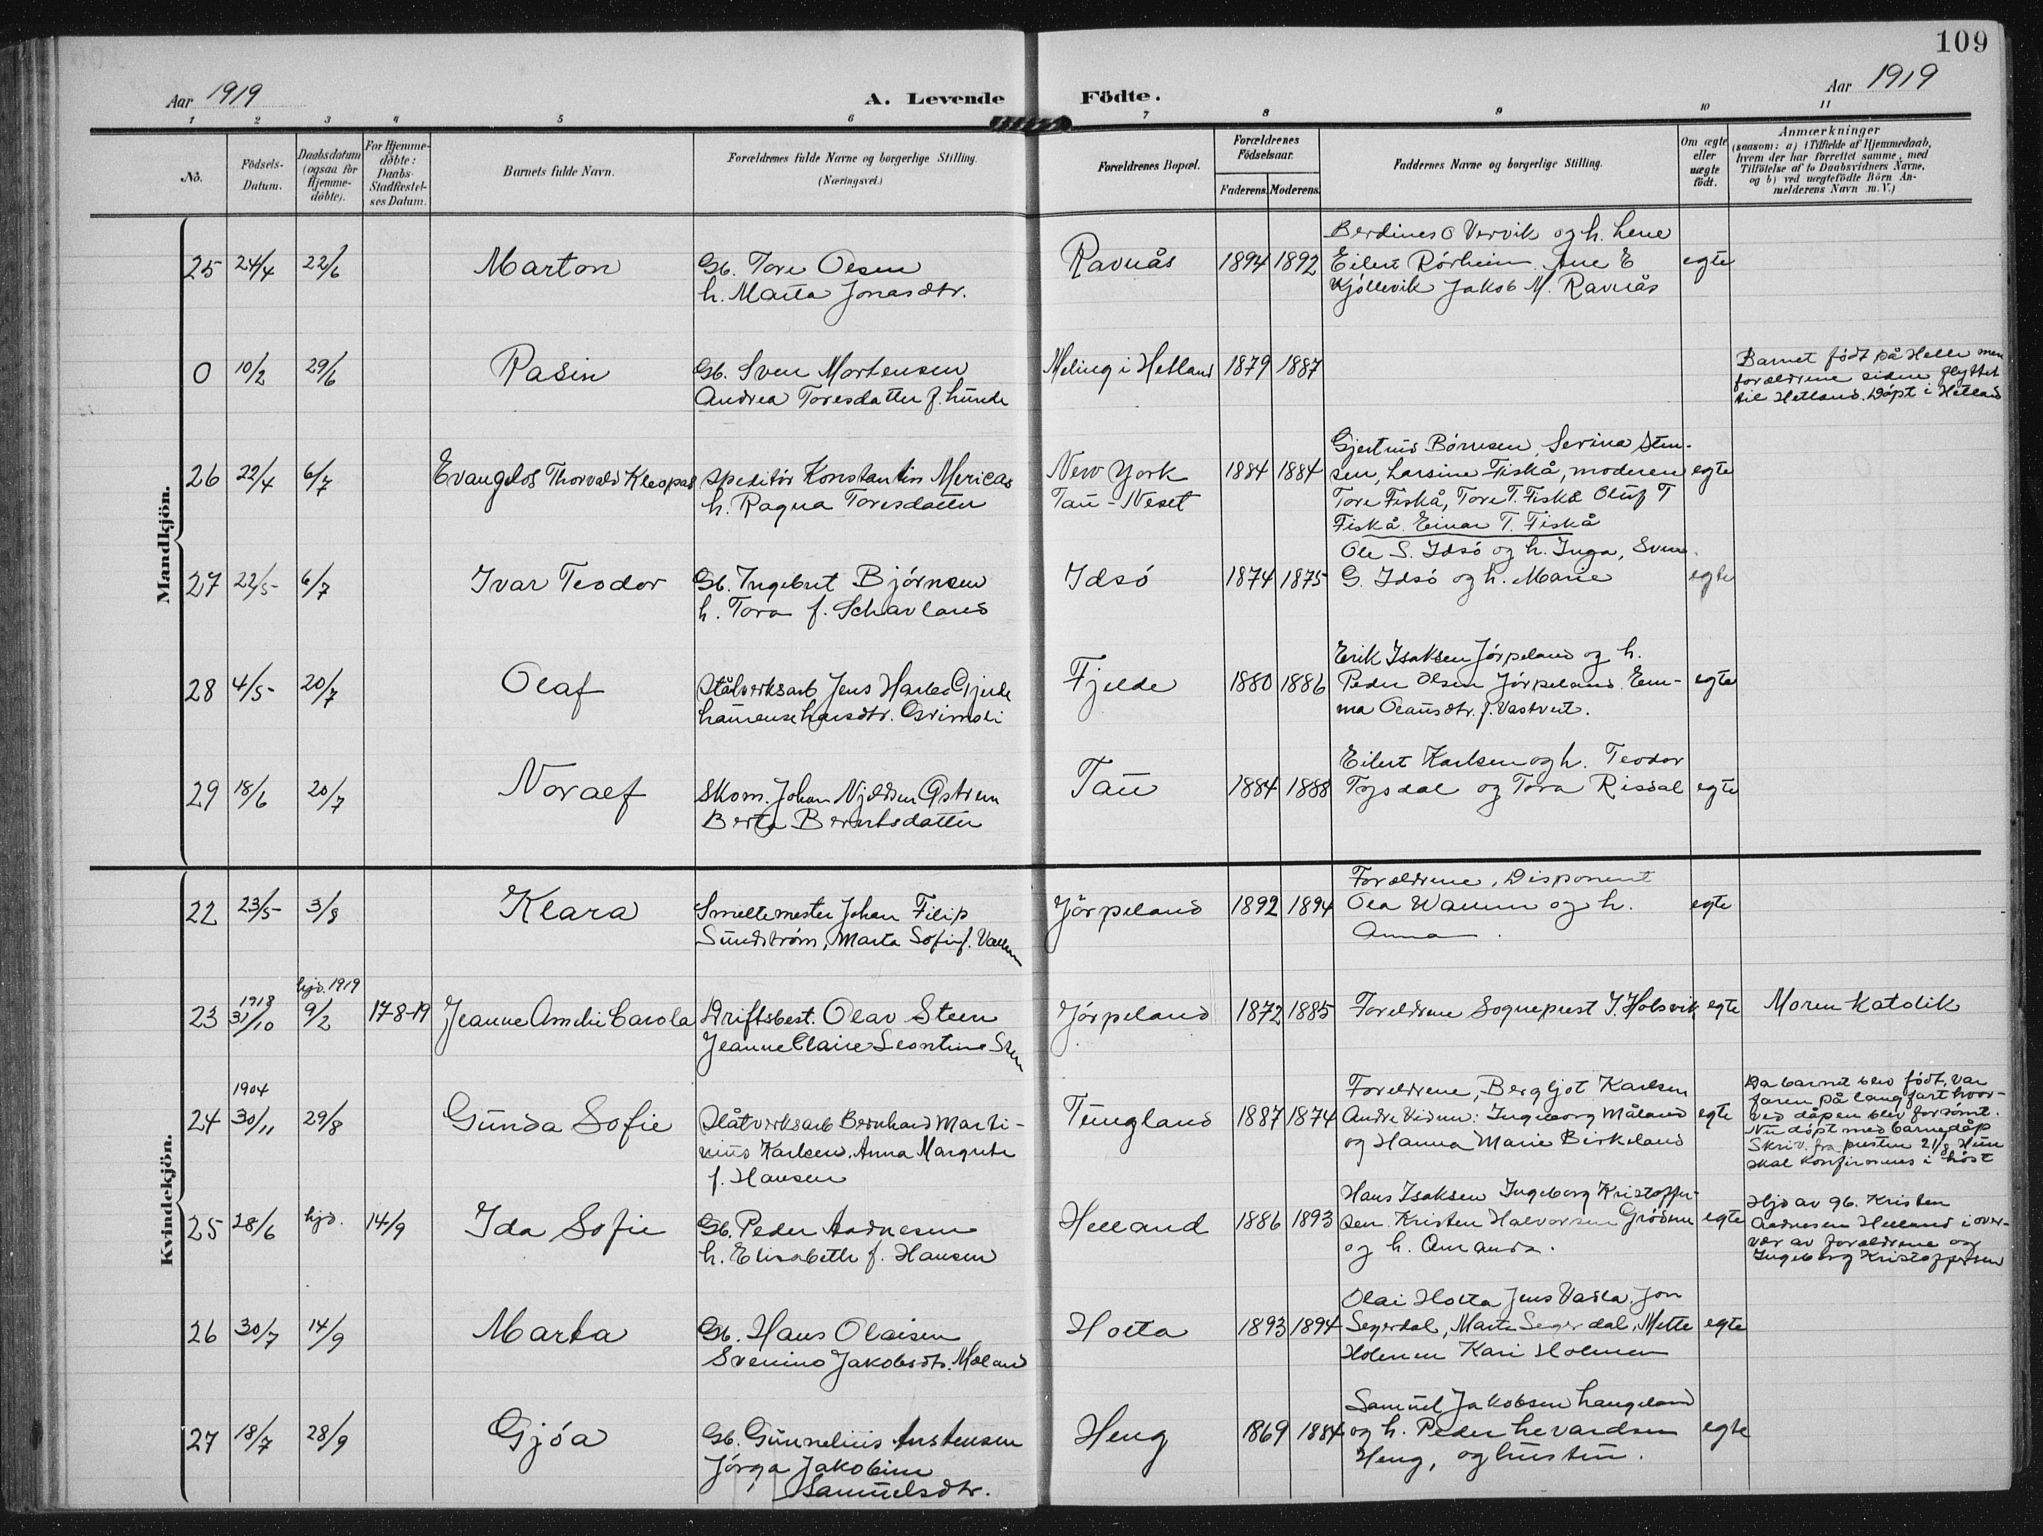 109
Aar 1919
A. Levende Födte.
Aar 1919
1 2 3 4 5 6 7 8 9 10 11
No.
Födsels-Datum.
Daabsdatum (ogsaa for Hjemme-döbte).
For Hjemme-döbte: Daabs-Stadfæstel-ses Datum.
Barnets fulde Navn.
Forældrenes fulde Navne og borgerlige Stilling.
(Næringsvei.)
Forældrenes Bopæl.
Forældrenes Födselsaar.
Faderens. Moderens.
Faddernes Navne og borgerlige Stilling.
Om ægte eller uægte födt.
Anmærkninger
(saasom: a) i Tilfælde af Hjemmedaab, hvem der har forrettet samme, med Tilföielse af to Daabsvidners Navne, og b) ved uægtefödte Börn An-melderens Navn m. V.)
Mandkjön.
25 24/4 22/6 Marton Gb. Tore Olsen
h. Marta Jonasdtr. Ravnås 1894 1892 Berdines O Vervik og h. Lene
Eilert Rørheim. Ane E
Kjöllevik Jakob M. Ravnås egte
0 10/2 29/6 Rasin Gb. Sven Mortensen
Andrea Toresdatter f. Lunde Meling i Hetland 1879 1887 Barnet født på Helle men
forældrene siden flyttet
til Hetland. Döpt i Hetland
26 22/4 6/7 Evangelos Thorvald Kleopas Speditör Konstantin Mericas
h. Ragna Toresdatter New York
Tau - Neset 1884 1884 Gjertrud Börresen, Serina Sten-
sen, Larsine Fiskå, moderen
Tore Fiskå, Tore T. Fiskå Oluf T
Fiskå. Einar T. Fiskå egte
27 22/5 6/7 Ivar Teodor Gb. Ingebret Björnsen
h. Tora f. Schavland Idsö 1874 1875 Ole S. Idsö og h. Inga, Sven
G. Idsö og h. Marie egte
28 4/5 20/7 Olaf Stålverksarb Jens Harbo Gjerde
Fjelde 1880 1886 Erik Isaksen Jörpeland og h.
Peder Olsen Jörpeland. Em-
ma Olausdtr. f. Vastveit. egte
29 18/6 20/7 Noralf Skom. Johan Njeldsen Østrem
Berta Berntsdatter Tau 1884 1888 Eilert Karlsen og h. Teodor
Tysdal og Tora Risdal egte
Kvindekjön.
22 23/5 3/8 Klara Smeltemester Johan Filip
Sundström, Marta Sofie f. Jörpeland 1892 1894 Forældrene, Disponent
Ola og h.
Anna egte
23 1918 31/10 hjd. 1919 9/2 17-8-19 Jeanne Amelie Carola Driftsbest. Olav Steen
Jeanne Claire Leontine Steen Jörpeland 1872 1885 Foreldrene Sogneprest J. Holsvik egte Moren Katolik
24 1904 30/11 29/8 Gunda Sofie Stålverksarb Bernhard Marti-
nius Karlsen. Anna Margrete
f. Hansen Tungland 1887 1874 Foreldrene, Bergljot Karlsen
Andre Vidner: Ingeborg Måland
og Hanna Marie Birkeland egte Da barnet blev född, var
faren på langfart hvor-
ved dåpen blev forsömt.
Nu döpt med barnedåp
Skriv. fra presten 21/8 Hun
skal konfirmeres i höst
25 28/6 hjd. 14/9 Ida Sofie Gb. Peder Aadnesen
h. Elisabeth f. Hansen Helland 1886 1893 Hans Isaksen Ingeborg Kristoffer-
sen. Kristen Halvorsen Grödem
og h. Amanda. egte Hjd av gb. Kristen
Aadnesen Helland i over-
vær av forældrene og
Ingeborg Kristoffersen
26 30/7 14/9 Marta Gb. Hans Olaisen
Jakobsdtr. Holta 1893 1894 Olai Holta Jens Jon
Segerdal, Marta Segerdal, Mette
Holmen Kari Holmen egte
27 18/7 28/9 Gjöa Gb. Gunnelius Austensen
Jörga Jakobine
Samuelsdtr. Heng 1869 1884 Samuel Jakobsen Langeland
og h. Peder Levardsen
Heng, og hustru. egte